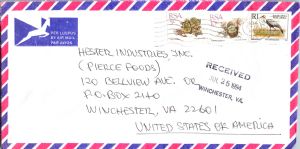 PER LUGPOS
BY AIR MAIL
PAR AVION
RSA
RSA
R1
HESTER INDUSTRIES INC.
(PIERCE FOODS)
120 BELLVIEW AVE. OR
P.O. BOX 2140
WINCHESTER, VA 22601
UNITED STATES OF AMERICA
RECEIVED
JUL 25 1994
WINCHESTER, VA.